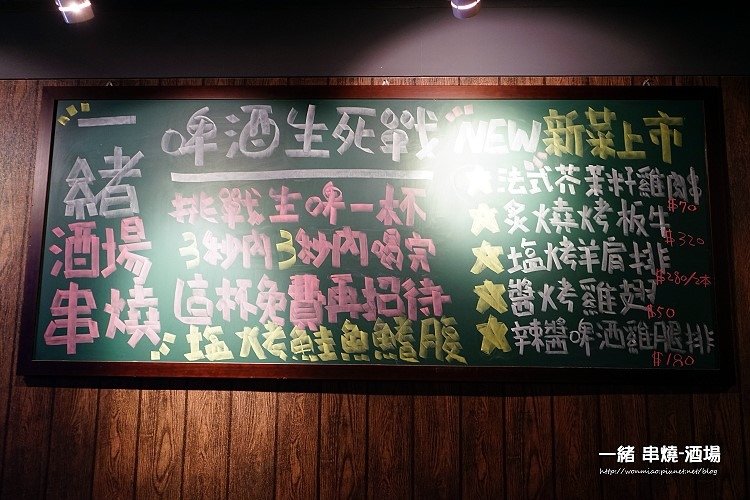 一緒
酒場
串燒
啤酒生死戰
挑戰生啤一杯
3秒內3秒內喝完
這杯免費再招待
塩烤鮭魚鰭腹
NEW新菜上市
法式芥茉籽雞肉串
$70
炙燒烤板牛
$320
塩烤羊肩排
$280/2本
醬烤雞翅
$50
辣醬啤酒雞腿排
$180
一緒 串燒-酒場
http://wonmiao.pixnet.net/blog